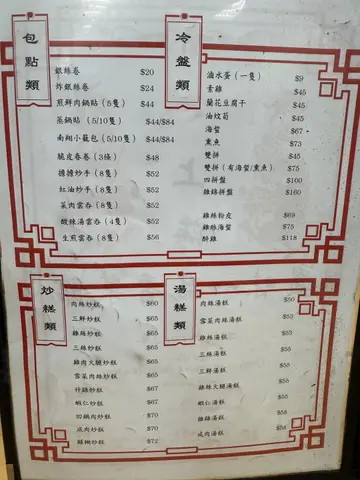 包點類
銀絲卷 $20
炸銀絲卷 $24
煎鮮肉鍋貼 (5隻) $44
蒸鍋貼 (5/10隻) $44/$84
南翔小籠包 (5/10隻) $44/$84
脆皮春卷 (3條) $48
擔擔炒手 (8隻) $52
紅油炒手 (8隻) $52
菜肉雲吞 (8隻) $52
酸辣湯雲吞 (4隻) $52
生煎雲吞 (8隻) $56
冷盤類
滷水蛋 (一隻) $9
素雞 $45
蘭花豆腐干 $45
油炆筍 $45
海蜇 $67
熏魚 $73
雙拼 $45
雙拼 (有海蜇/熏魚) $75
四拼盤 $100
雜錦拼盤 $160
雞絲粉皮 $69
雞絲海蜇 $75
醉雞 $118
炒糕類
肉絲炒糕 $60
三鮮炒糕 $65
雞絲炒糕 $65
三絲炒糕 $65
雞肉火腿炒糕 $65
雪菜肉絲炒糕 $65
什錦炒糕 $67
蝦仁炒糕 $67
回鍋肉炒糕 $70
咸肉炒糕 $70
炒糕 $72
湯糕類
肉絲湯糕 $50
雪菜肉絲湯糕 $55
雞絲湯糕 $55
三絲湯糕 $55
三鮮湯糕 $55
雞絲火腿湯糕 $55
蝦仁湯糕 $55
雜錦湯糕 $55
咸肉湯糕 $55